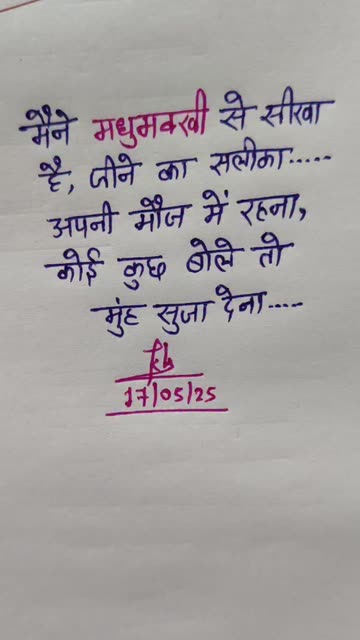 मैने मधुमक्खी से सीखा
है, जीने का सलीका.....
अपनी मौज में रहना,
कोई कुछ बोले तो
मुंह सुजा देना.....
17/05/25